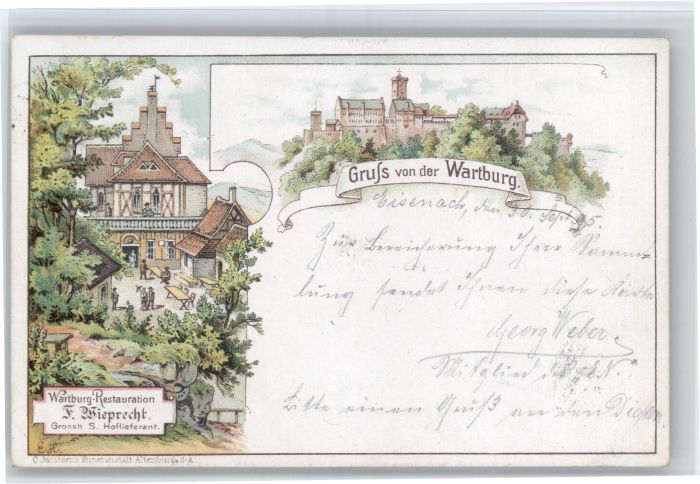 Gruſs von der Wartburg.
Eisenach, den 30. Sept. 95.
Zur Bereicherung Ihrer Samm-
lung sendet Ihnen diese Karte
Georg Weber
Mitglied
Bitte einen Gruß an den
Wartburg-Restauration
F. Wieprecht.
Grossh. S. Hoflieferant.
E.H.
C. Jacobsen's Kunstanstalt Altenburg S-A.